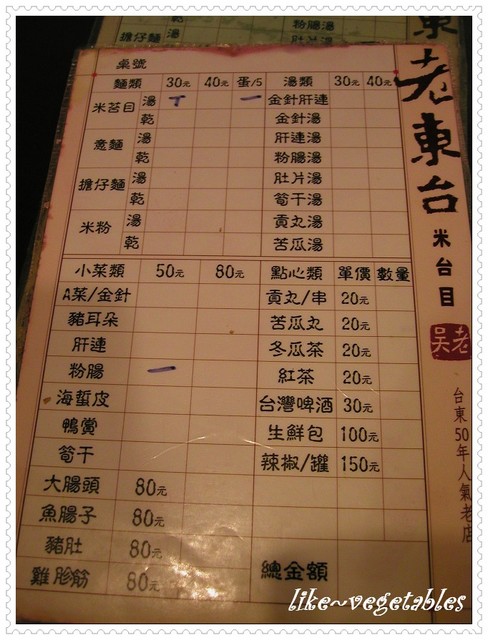 粉腸湯
擔仔麵 湯 肚片湯
東
桌號
麵類 30元 40元 蛋/5 湯類 30元 40元
米苔目 湯 金針肝連
乾 金針湯
意麵 湯 肝連湯
乾 粉腸湯
擔仔麵 湯 肚片湯
乾 筍干湯
米粉 湯 貢丸湯
乾 苦瓜湯
小菜類 50元 80元 點心類 單價 數量
A菜/金針 貢丸/串 20元
豬耳朵 苦瓜丸 20元
肝連 冬瓜茶 20元
粉腸 紅茶 20元
海蜇皮 台灣啤酒 30元
鴨賞 生鮮包 100元
筍干 辣椒/罐 150元
大腸頭 80元
魚腸子 80元
豬肚 80元
雞胗筋 80元
總金額
老東台
米台目
老吳
台東50年人氣老店
like~vegetables